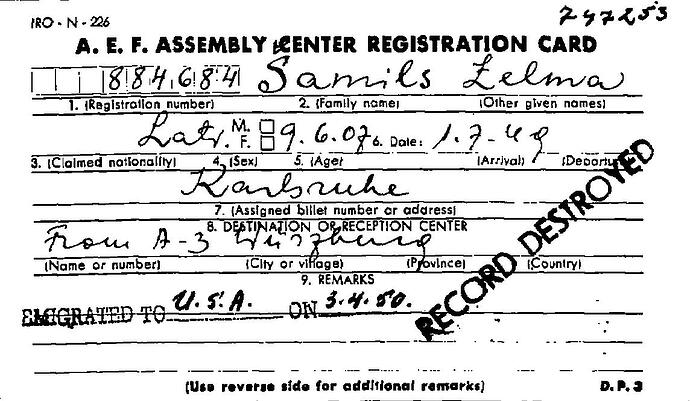 IRO - N - 226
747253
A. E. F. ASSEMBLY CENTER REGISTRATION CARD
884684 Samils Zelma
1. (Registration number) 2. (Family name) (Other given names)
Latv. M. F. 9.6.07 6. Date: 1.7-49
3. (Claimed nationality) 4. (Sex) 5. (Age) (Arrival) (Departu
Karlsruhe
7. (Assigned billet number or address)
8. DESTINATION OR RECEPTION CENTER
From A-3 Würzburg
(Name or number) (City or village) (Province) (Country)
9. REMARKS
EMIGRATED TO U.S.A. ON 3.4.50.
RECORD DESTROYED
(Use reverse side for additional remarks) D.P.3